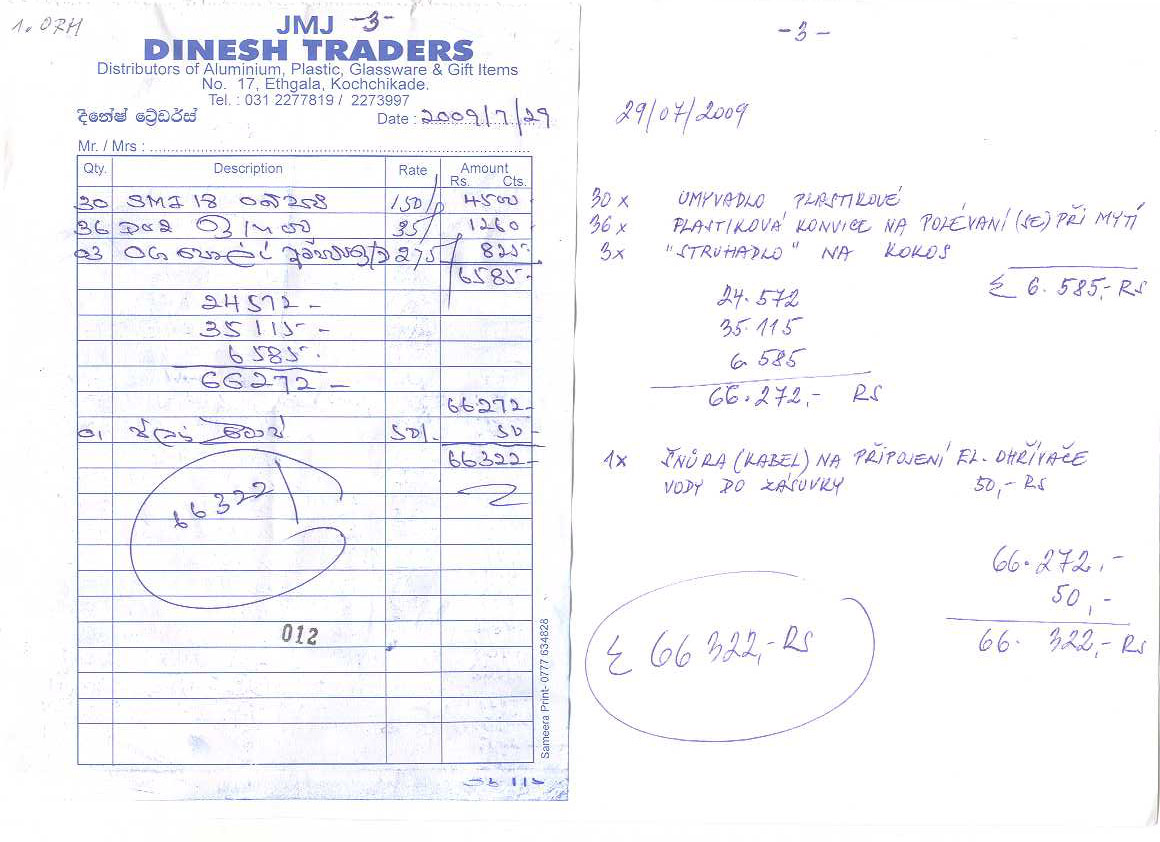 1. ORH
JMJ -3-
DINESH TRADERS
Distributors of Aluminium, Plastic, Glassware & Gift Items
No. 17, Ethgala, Kochchikade.
Tel. : 031 2277819 / 2273997
දිනේෂ් ට්‍රේඩර්ස්
Date : 2009/7/29
Mr. / Mrs :
Qty. Description Rate Amount
Rs. Cts.
30 SMI 18 150/- 4500
36 35/- 1260
03 275/- 825-
6585-
24572-
35115-
6585-
66272-
66272-
01 50/- 50-
66322-
66322
012
Sameera Print- 0777 634828
-3-
29/07/2009
30x UMYVADLO PLASTIKOVÉ
36x PLASTIKOVÁ KONVICE NA POLÉVANÍ (SE) PŘI MYTÍ
3x "STRUHADLO" NA KOKOS
Σ 6.585,- RS
24.572
35.115
6.585
66.272,- RS
1x ŠNŮRA (KABEL) NA PŘIPOJENÍ EL. OHŘÍVAČE
VODY DO ZÁSUVKY 50,- RS
66.272,-
50,-
66. 322,- RS
Σ 66 322,- RS